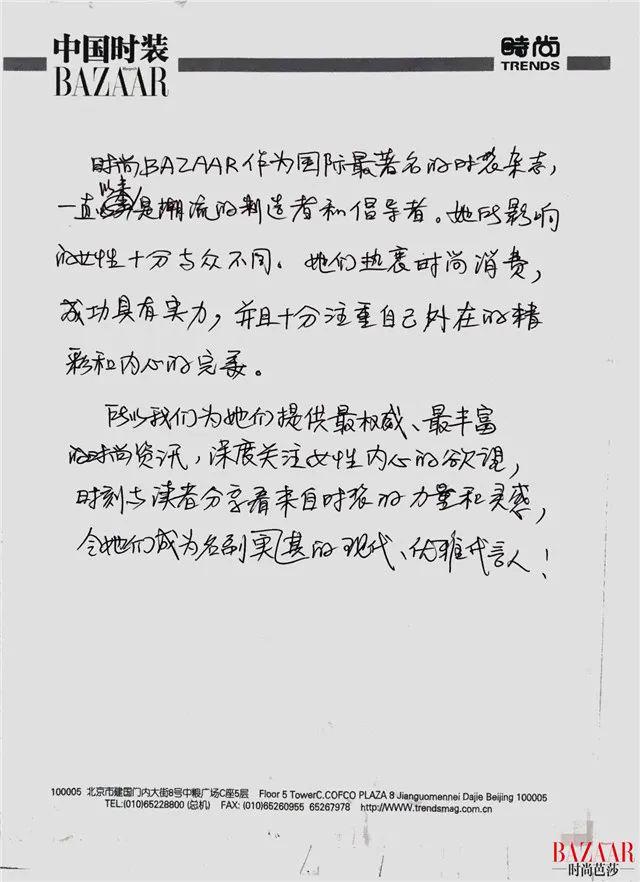 中国时装
BAZAAR
時尚
TRENDS
时尚BAZAAR作为国际最著名的时装杂志,
一直以来是潮流的制造者和倡导者。她所影响
的女性十分与众不同。她们热衷时尚消费,
成功具有实力,并且十分注重自己外在的精
彩和内心的完美。
所以我们为她们提供最权威、最丰富
的时尚资讯,深度关注女性内心的欲望,
时刻与读者分享着来自时装的力量和灵感,
令她们成为名副其实的现代、优雅代言人!
100005 北京市建国门内大街8号中粮广场C座5层 Floor 5 TowerC.COFCO PLAZA 8 Jianguomennei Dajie Beijing 100005
TEL:(010)65228800 (总机) FAX: (010)65260955 65267978 http://WWW.trendsmag.com.cn
BAZAAR
时尚芭莎